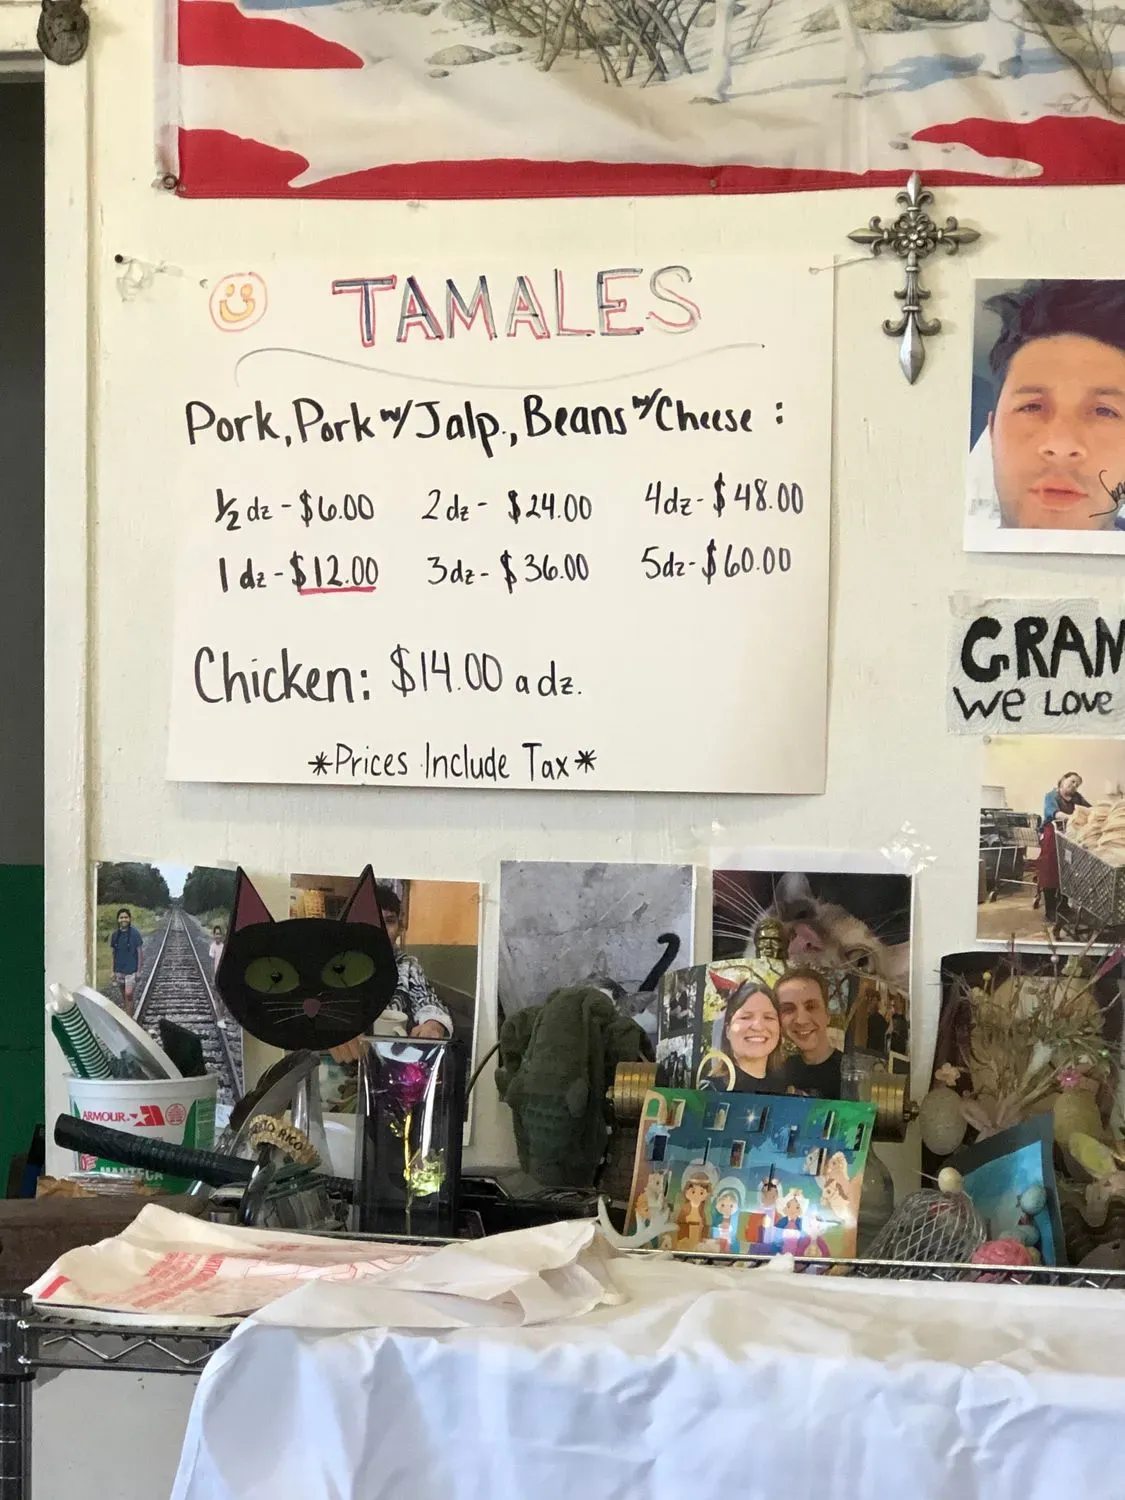 TAMALES
Pork, Pork w/ Jalp., Beans w/ Cheese :
1/2 dz - $6.00 2 dz - $24.00 4dz - $48.00
1 dz - $12.00 3dz - $36.00 5dz - $60.00
Chicken: $14.00 a dz.
*Prices Include Tax*
GRAN
WE LOVE
ARMOUR
MANTECA